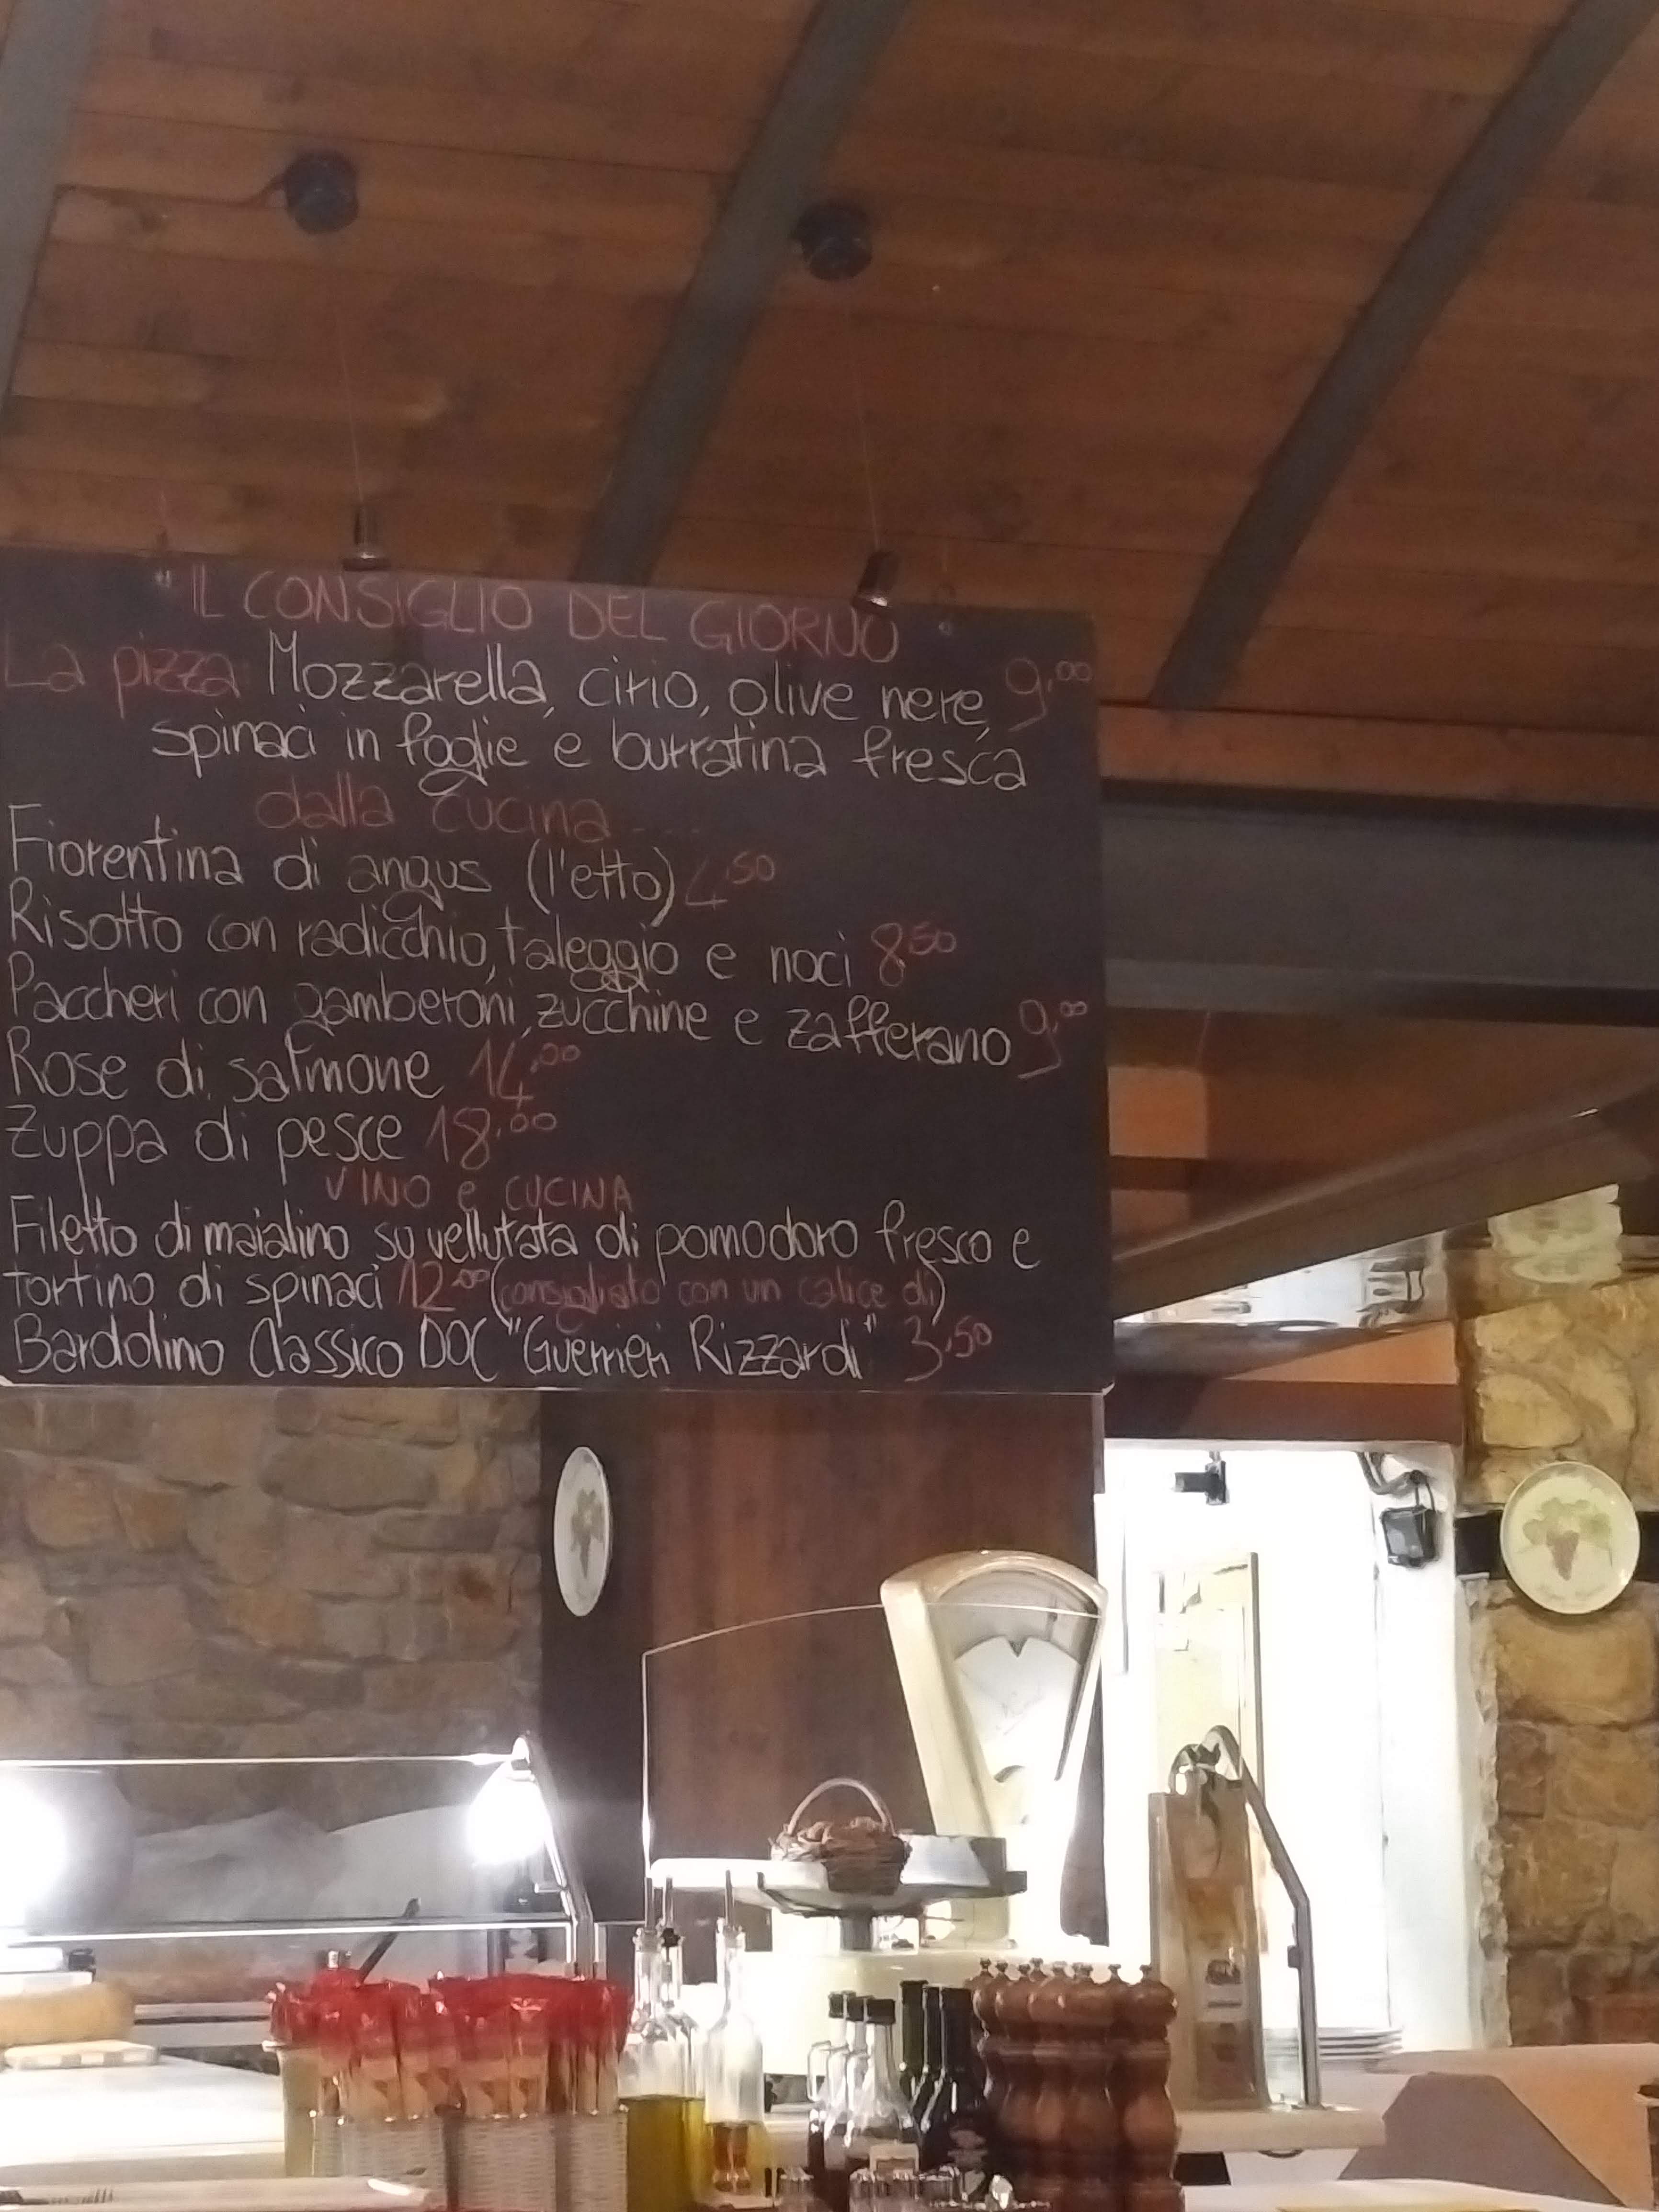 "IL CONSIGLIO DEL GIORNO
La pizza: Mozzarella, cirio, olive nere, 9,00
spinaci in foglie e burratina fresca
dalla cucina....
Fiorentina di angus (l'etto) 4,50
Risotto con radicchio, taleggio e noci 8,50
Paccheri con gamberoni, zucchine e zafferano 9,00
Rose di salmone 14,00
Zuppa di pesce 18,00
VINO e CUCINA
Filetto di maialino su vellutata di pomodoro fresco e
tortino di spinaci 12,00 (consigliato con un calice di)
Bardolino Classico DOC "Guerrieri Rizzardi" 3,50